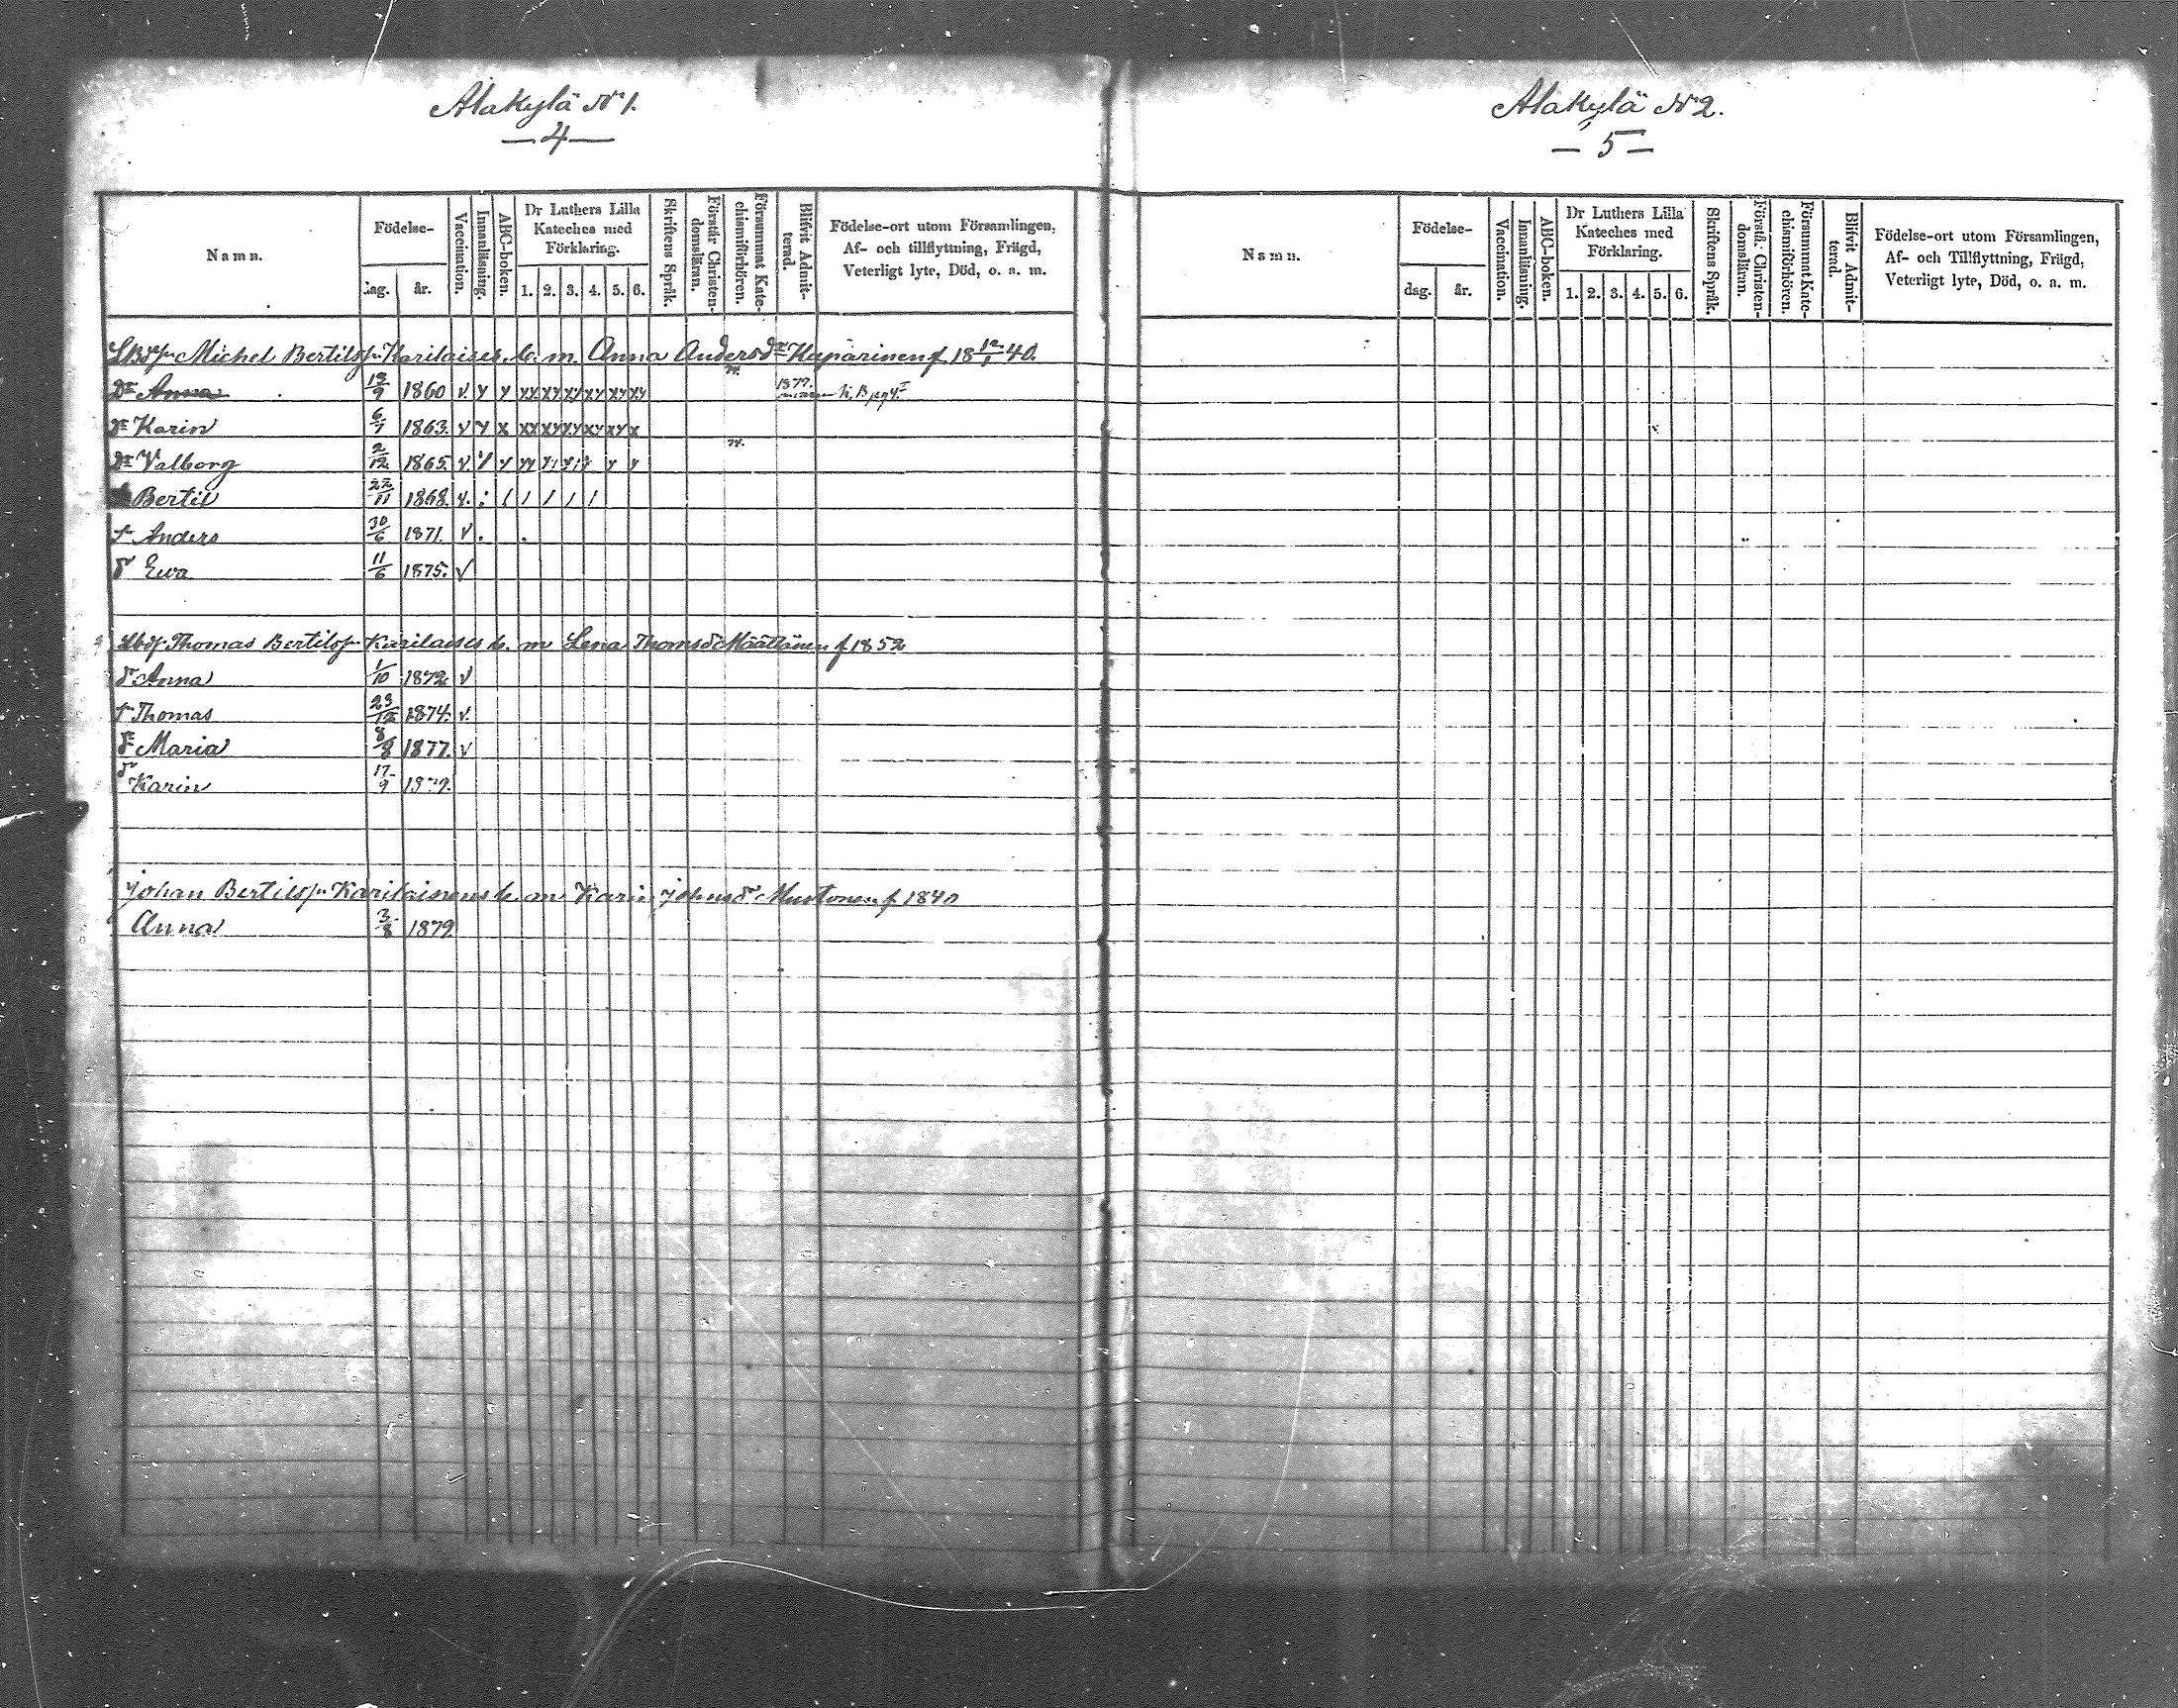 Alakylä № 1.
— 4 —
Namn.
Födelse-
dag.
år.
Vaccination.
Innanläsning.
ABC-boken.
Dr Luthers Lilla
Kateches med
Förklaring.
1. 2. 3. 4. 5. 6.
Skriftens Språk.
Förstår Christen-
domsläran.
Försummat Kate-
chismiförhören.
Blifvit Admit-
terad.
Födelse-ort utom Församlingen,
Af- och tillflyttning, Frägd,
Veterligt lyte, Död, o. a. m.
Michel Bertils Karilaises h. m. Anna Andersdr Kupärinen f 18 12/1 40.
Dr Anna 12/9 1860 v. y y xx xy xy xy xy xy 1877.
dr Karin 6/1 1863. v y x xx xy xy xy xy x
Dr Valborg 2/12 1865. v.
Bertil 22/11 1868. v. : / / / / /
Anders 30/6 1871. v .
d Ewa 11/6 1875. v
Thomas Bertils Karilaises h. m Lena Thomsdr Määttänen f 1852
dr Anna 1/10 1872 v
Thomas 23/12 1874. v.
dr Maria 8/8 1877. v
dr Karin 17/9 1879.
Johan Bertils Karilainens h. m Karin Johnsdr Mustonen f 1840
Anna 3/8 1879
Alakylä № 2.
— 5 —
Namn.
Födelse-
dag.
år.
Vaccination.
Innanläsning.
ABC-boken.
Dr Luthers Lilla
Kateches med
Förklaring.
1. 2. 3. 4. 5. 6.
Skriftens Språk.
Förstå. Christen-
domsläran.
Försummat Kate-
chismiförhören.
Blifvit Admit-
terad.
Födelse-ort utom Församlingen,
Af- och Tillflyttning, Frägd,
Veterligt lyte, Död, o. a. m.